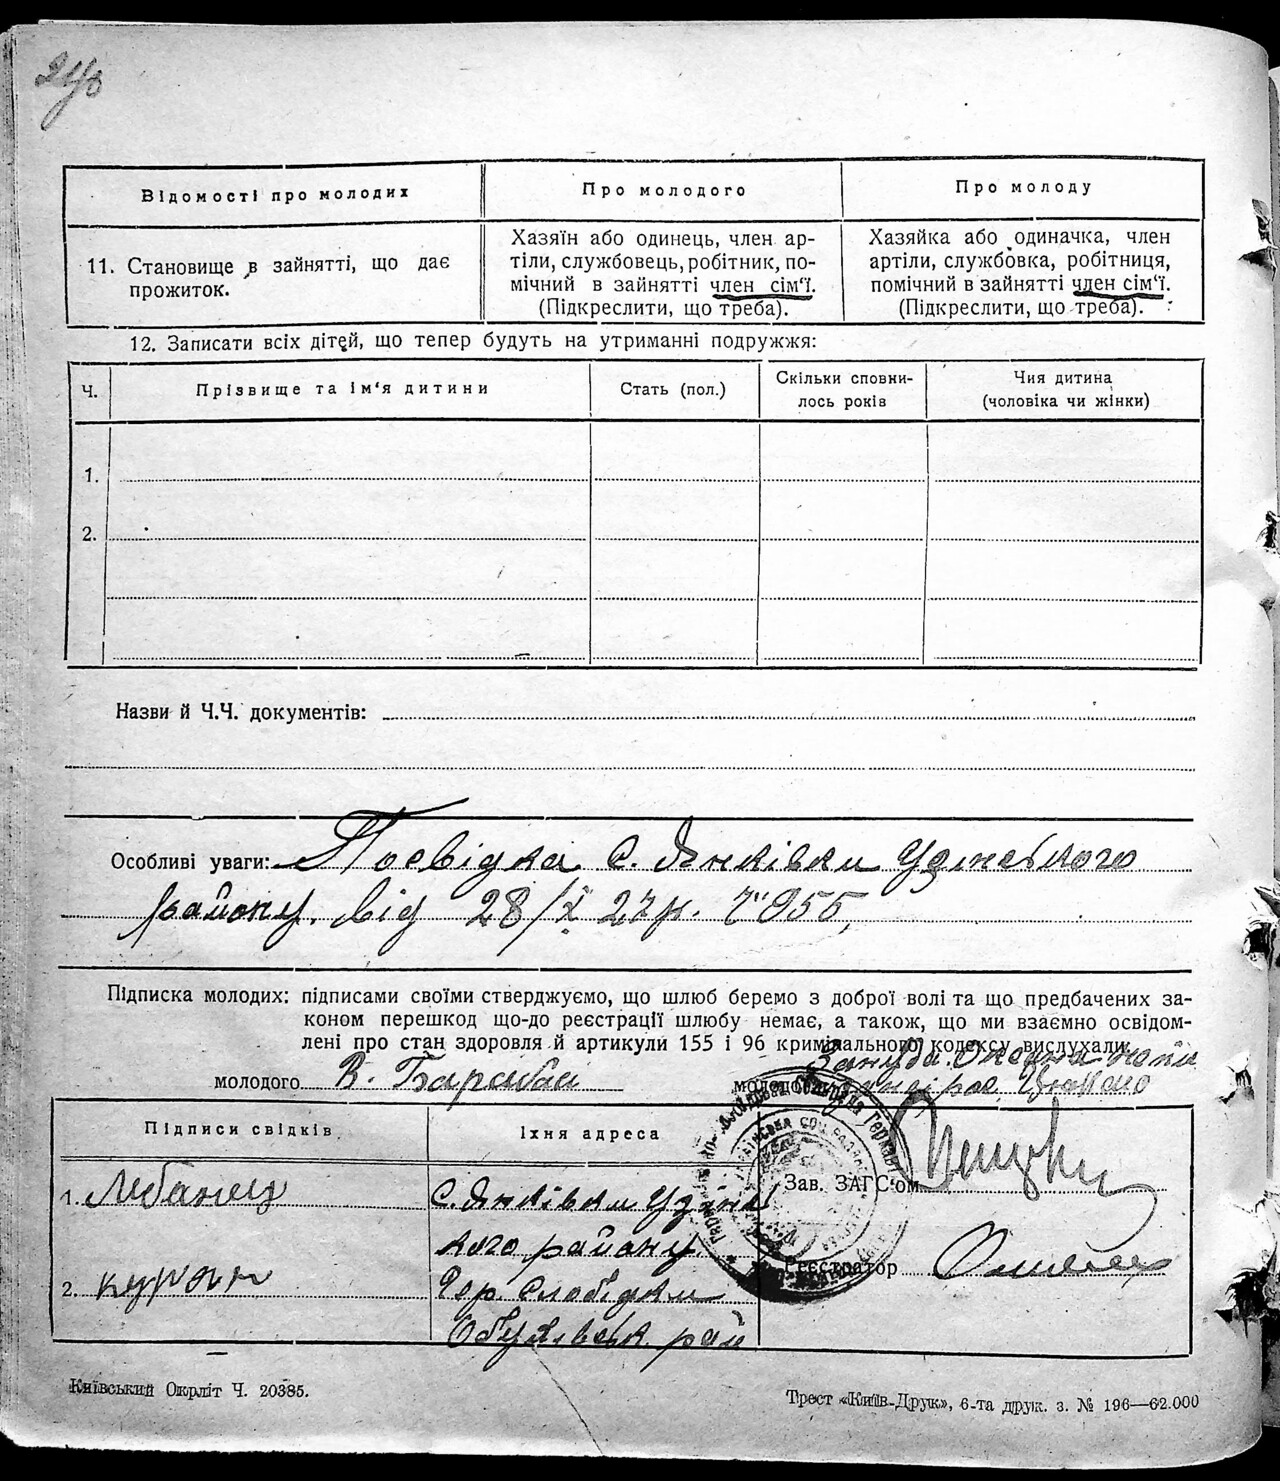 Відомості про молодих
Про молодого
Про молоду
11. Становище в зайнятті, що дає
прожиток.
Хазяїн або одинець, член ар-
тіли, службовець, робітник, по-
мічний в зайнятті член сім'ї.
(Підкреслити, що треба).
Хазяйка або одиначка, член
артіли, службовка, робітниця,
помічний в зайнятті член сім'ї.
(Підкреслити, що треба).
12. Записати всіх дітей, що тепер будуть на утриманні подружжя:
Ч.
Прізвище та ім'я дитини
Стать (пол.)
Скільки сповни-
лось років
Чия дитина
(чоловіка чи жінки)
1.
2.
Назви й Ч.Ч. документів:
Особливі уваги: Посвідка с. Янківки Узінського
району. від 28/X 27р. Ч 955
Підписка молодих: підписами своїми стверджуємо, що шлюб беремо з доброї волі та що предбачених за-
коном перешкод що-до реєстрації шлюбу немає, а також, що ми взаємно освідом-
лені про стан здоровля й артикули 155 і 96 кримінального кодексу вислухали:
молодого В. Барабаш
Підписи свідків
Їхня адреса
1. Лебанец
с. Янківки Узінс
кого району
2. Курян
Гер. Слобідки
Обухівськ. рай
Зав. ЗАГС'ом
Реєстратор
Київський Окрліт Ч. 20385.
Трест «Київ-Друк», 6-та друк. з. № 196—62.000